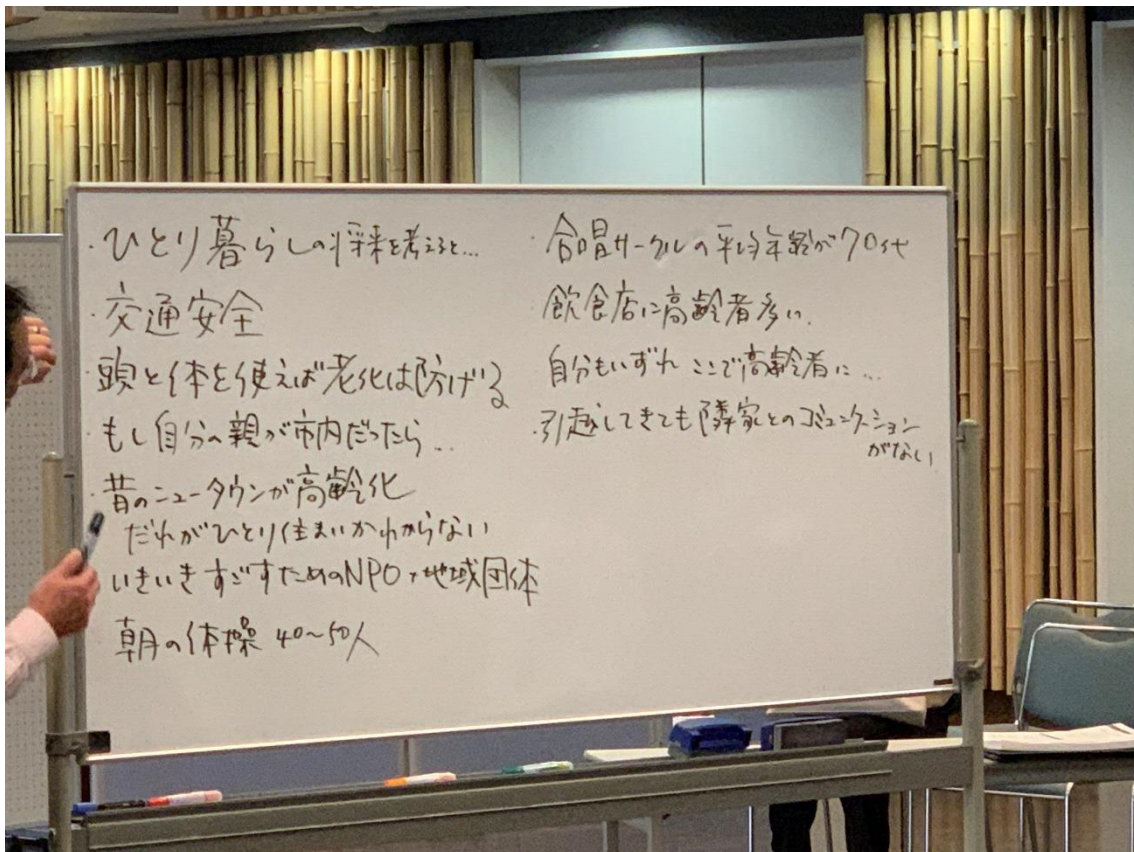 ・ひとり暮らしの将来を考えると…
・交通安全
・頭と体を使えば老化は防げる
・もし自分の親が市内だったら…
・昔のニュータウンが高齢化
だれがひとり住まいかわからない
・いきいきすごすためのNPO、地域団体
・朝の体操 40〜50人
・合唱サークルの平均年齢が70代
・飲食店に高齢者多い.
・自分もいずれここで高齢者に…
・引越してきても隣家とのコミュニケーション
がない